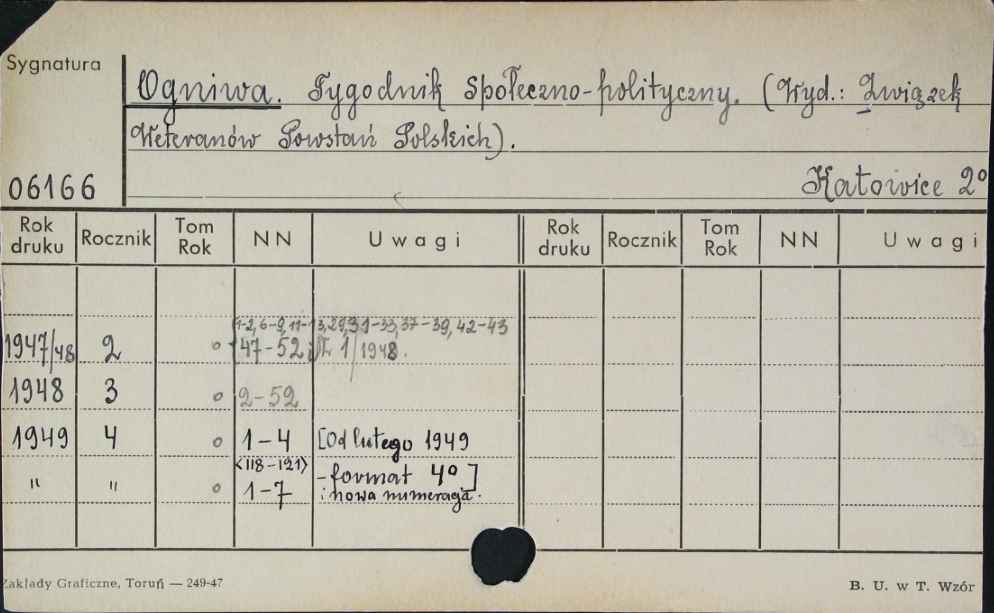 Sygnatura
Ogniwa. Tygodnik Społeczno-polityczny. (Wyd.: Związek
Weteranów Powstań Polskich).
06166
Katowice 2°
Rok druku Rocznik Tom Rok NN Uwagi Rok druku Rocznik Tom Rok NN Uwagi
1-2, 6-9, 11-13, 29, 31-33, 37-39, 42-43
1947/48 2 o 47-52 1/1948.
1948 3 o 2-52
1949 4 o 1-4 [Od lutego 1949
<118-121> - format 4°]
" " o 1-7 i nowa numeracja.
Zakłady Graficzne, Toruń — 249-47
B. U. w T. Wzór